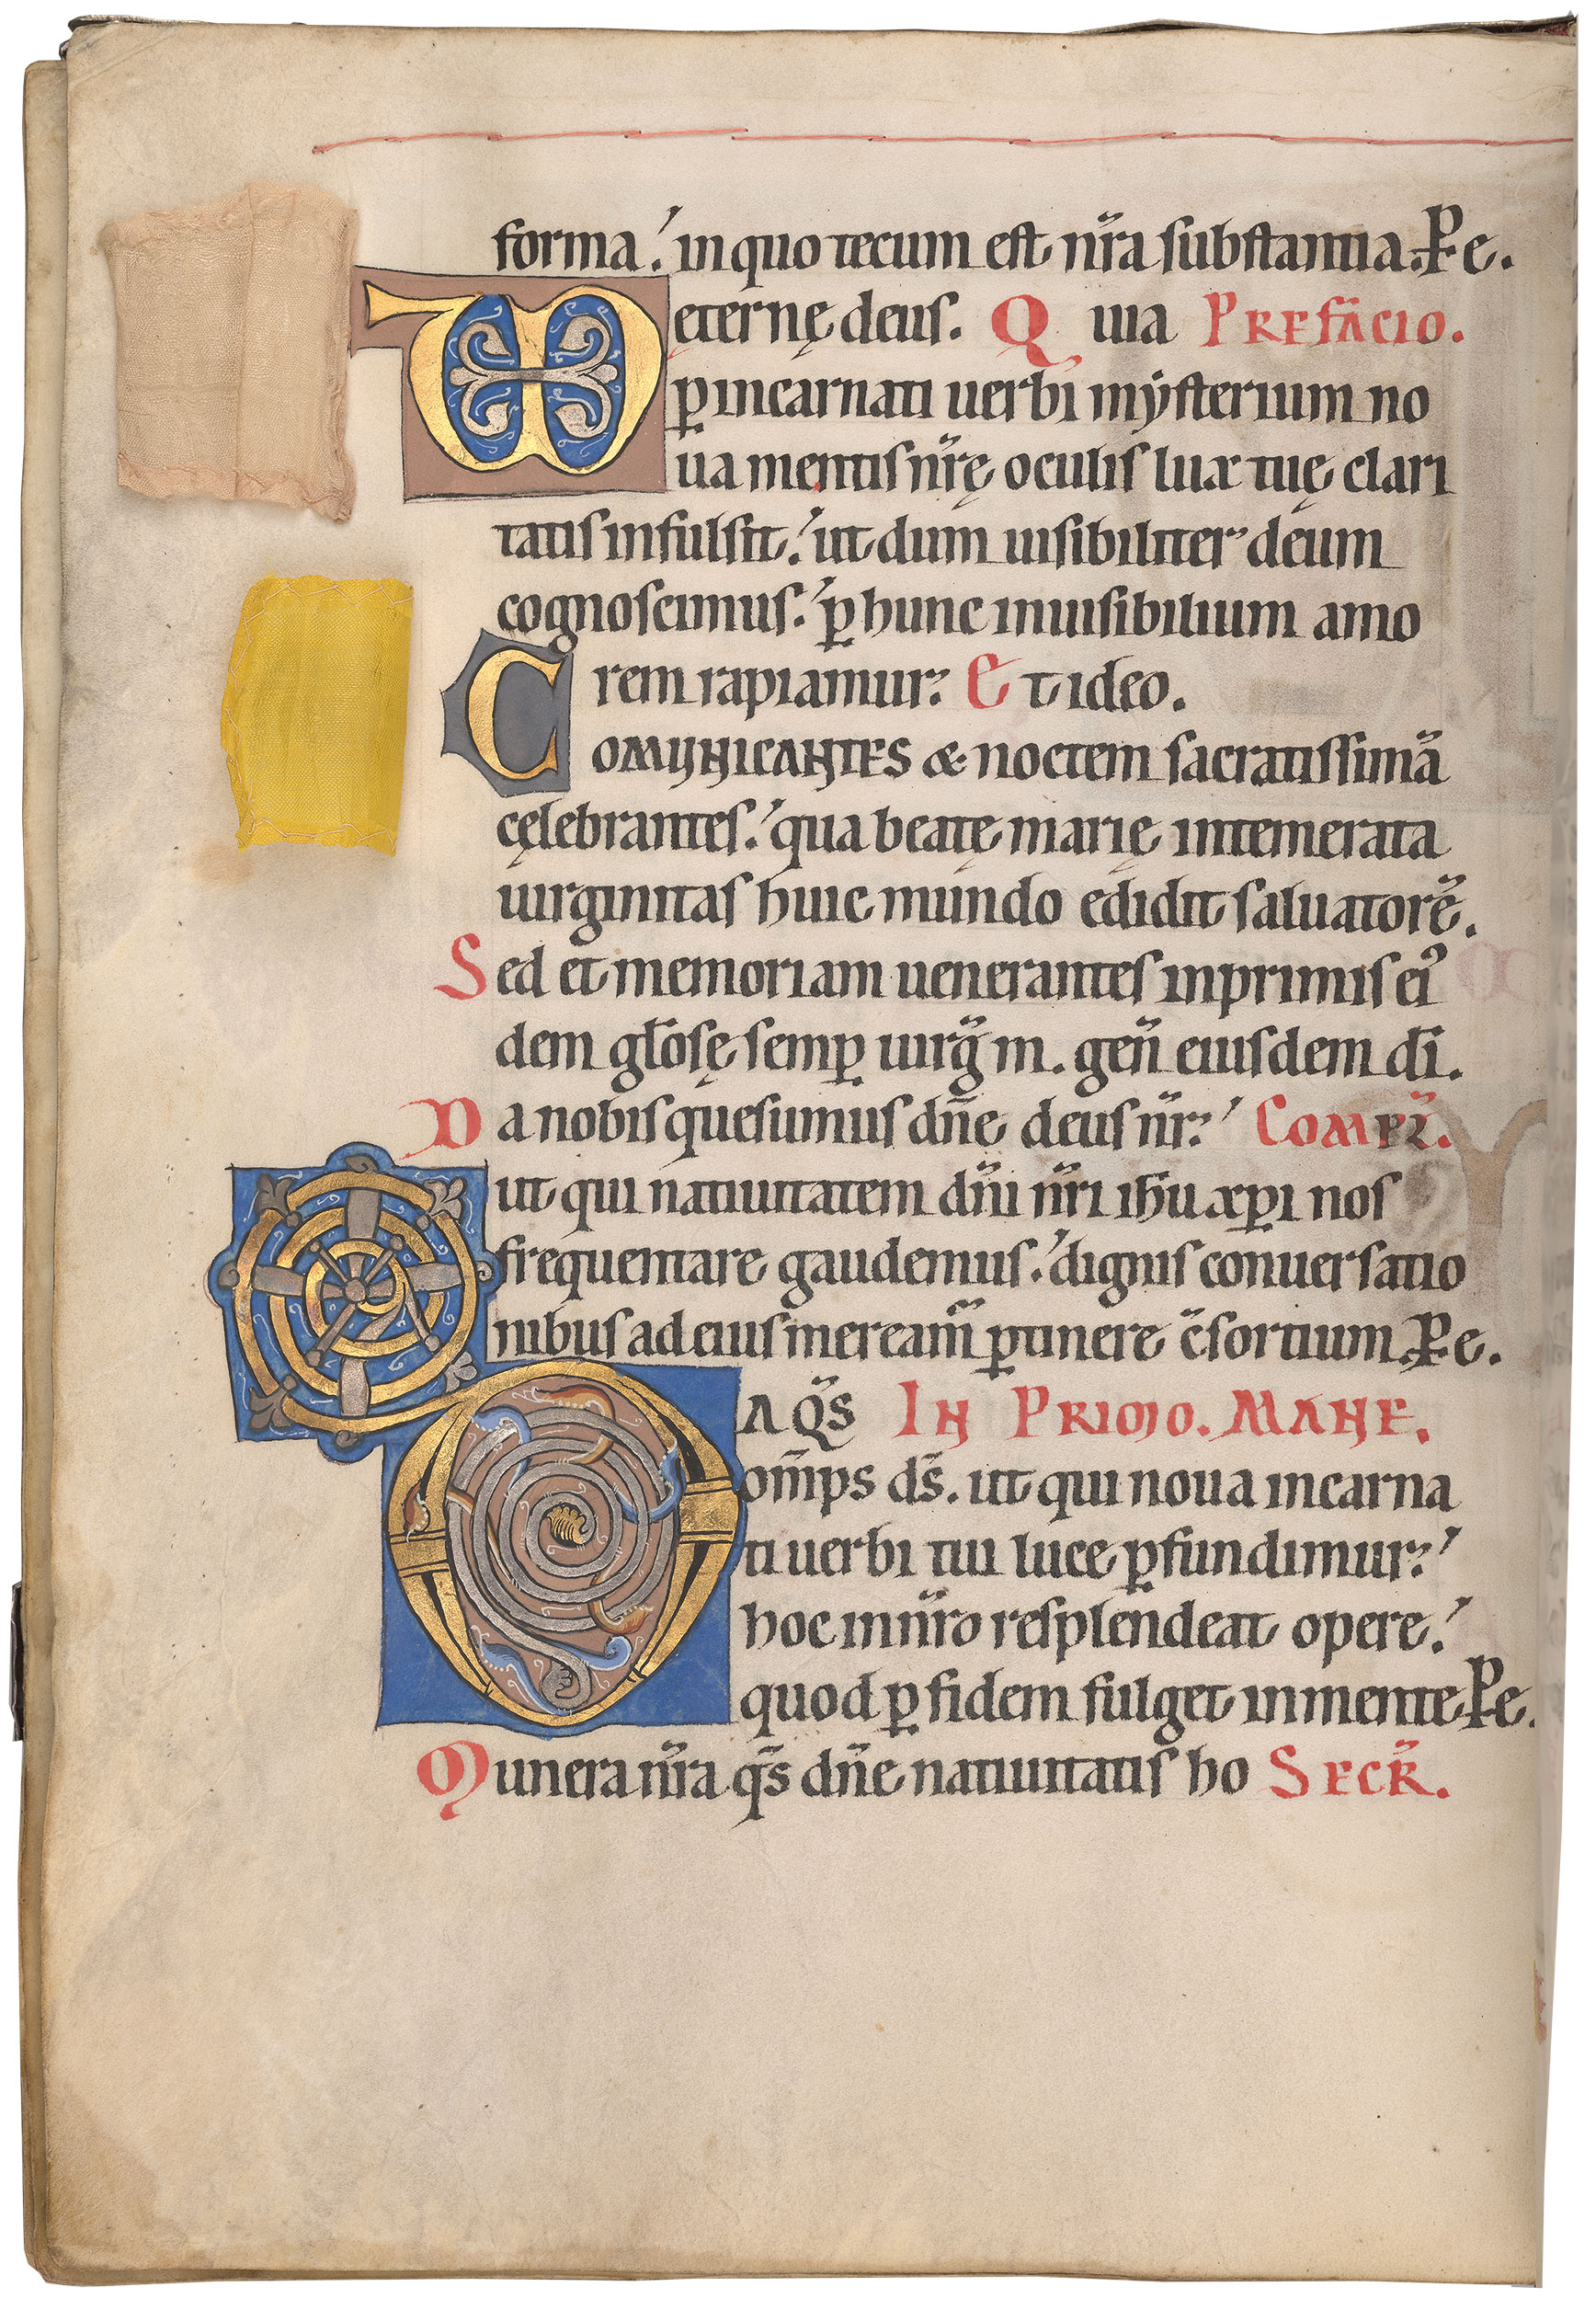 forma. in quo tecum est nr̃a substantia. Pe.
ęternę deus. Quia Prefacio.
ꝑ incarnati uerbi mẏsterium no
ua mentis nr̃ę oculis lux tuę clari
tatis infulsit. ut dum uisibiliter deum
cognoscimus. ꝑ hunc inuisibilium amo
rem rapiamur: Et ideo.
COMUNICANTES & noctem sacratissimã
cęlebrantes. qua beatę marię intemerata
uirginitas huic mundo edidit saluatorẽ.
Sed et memoriam uenerantes inprimis eiꝰ
dem gl̃osę semꝑ uirg̃ m. geñ eiusdem dĩ.
Da nobis quesumus dñe deus nr̃: Compl̃.
ut qui natiuitatem dñi nr̃i ih̃u xp̃i nos
frequentare gaudemus. dignis conuersatio
nibus ad eius meream̃ ꝑtinere c̃sortium. Pe.
DA q̃s In Primo. Mane.
om̃ps ds̃. ut qui noua incarna
ti uerbi tui luce ꝑfundimur:
hoc in nr̃o resplendeat opere.
quod ꝑ fidem fulget in mente Pe.
Munera nr̃a q̃s dñe natiuitatis ho Secr̃.